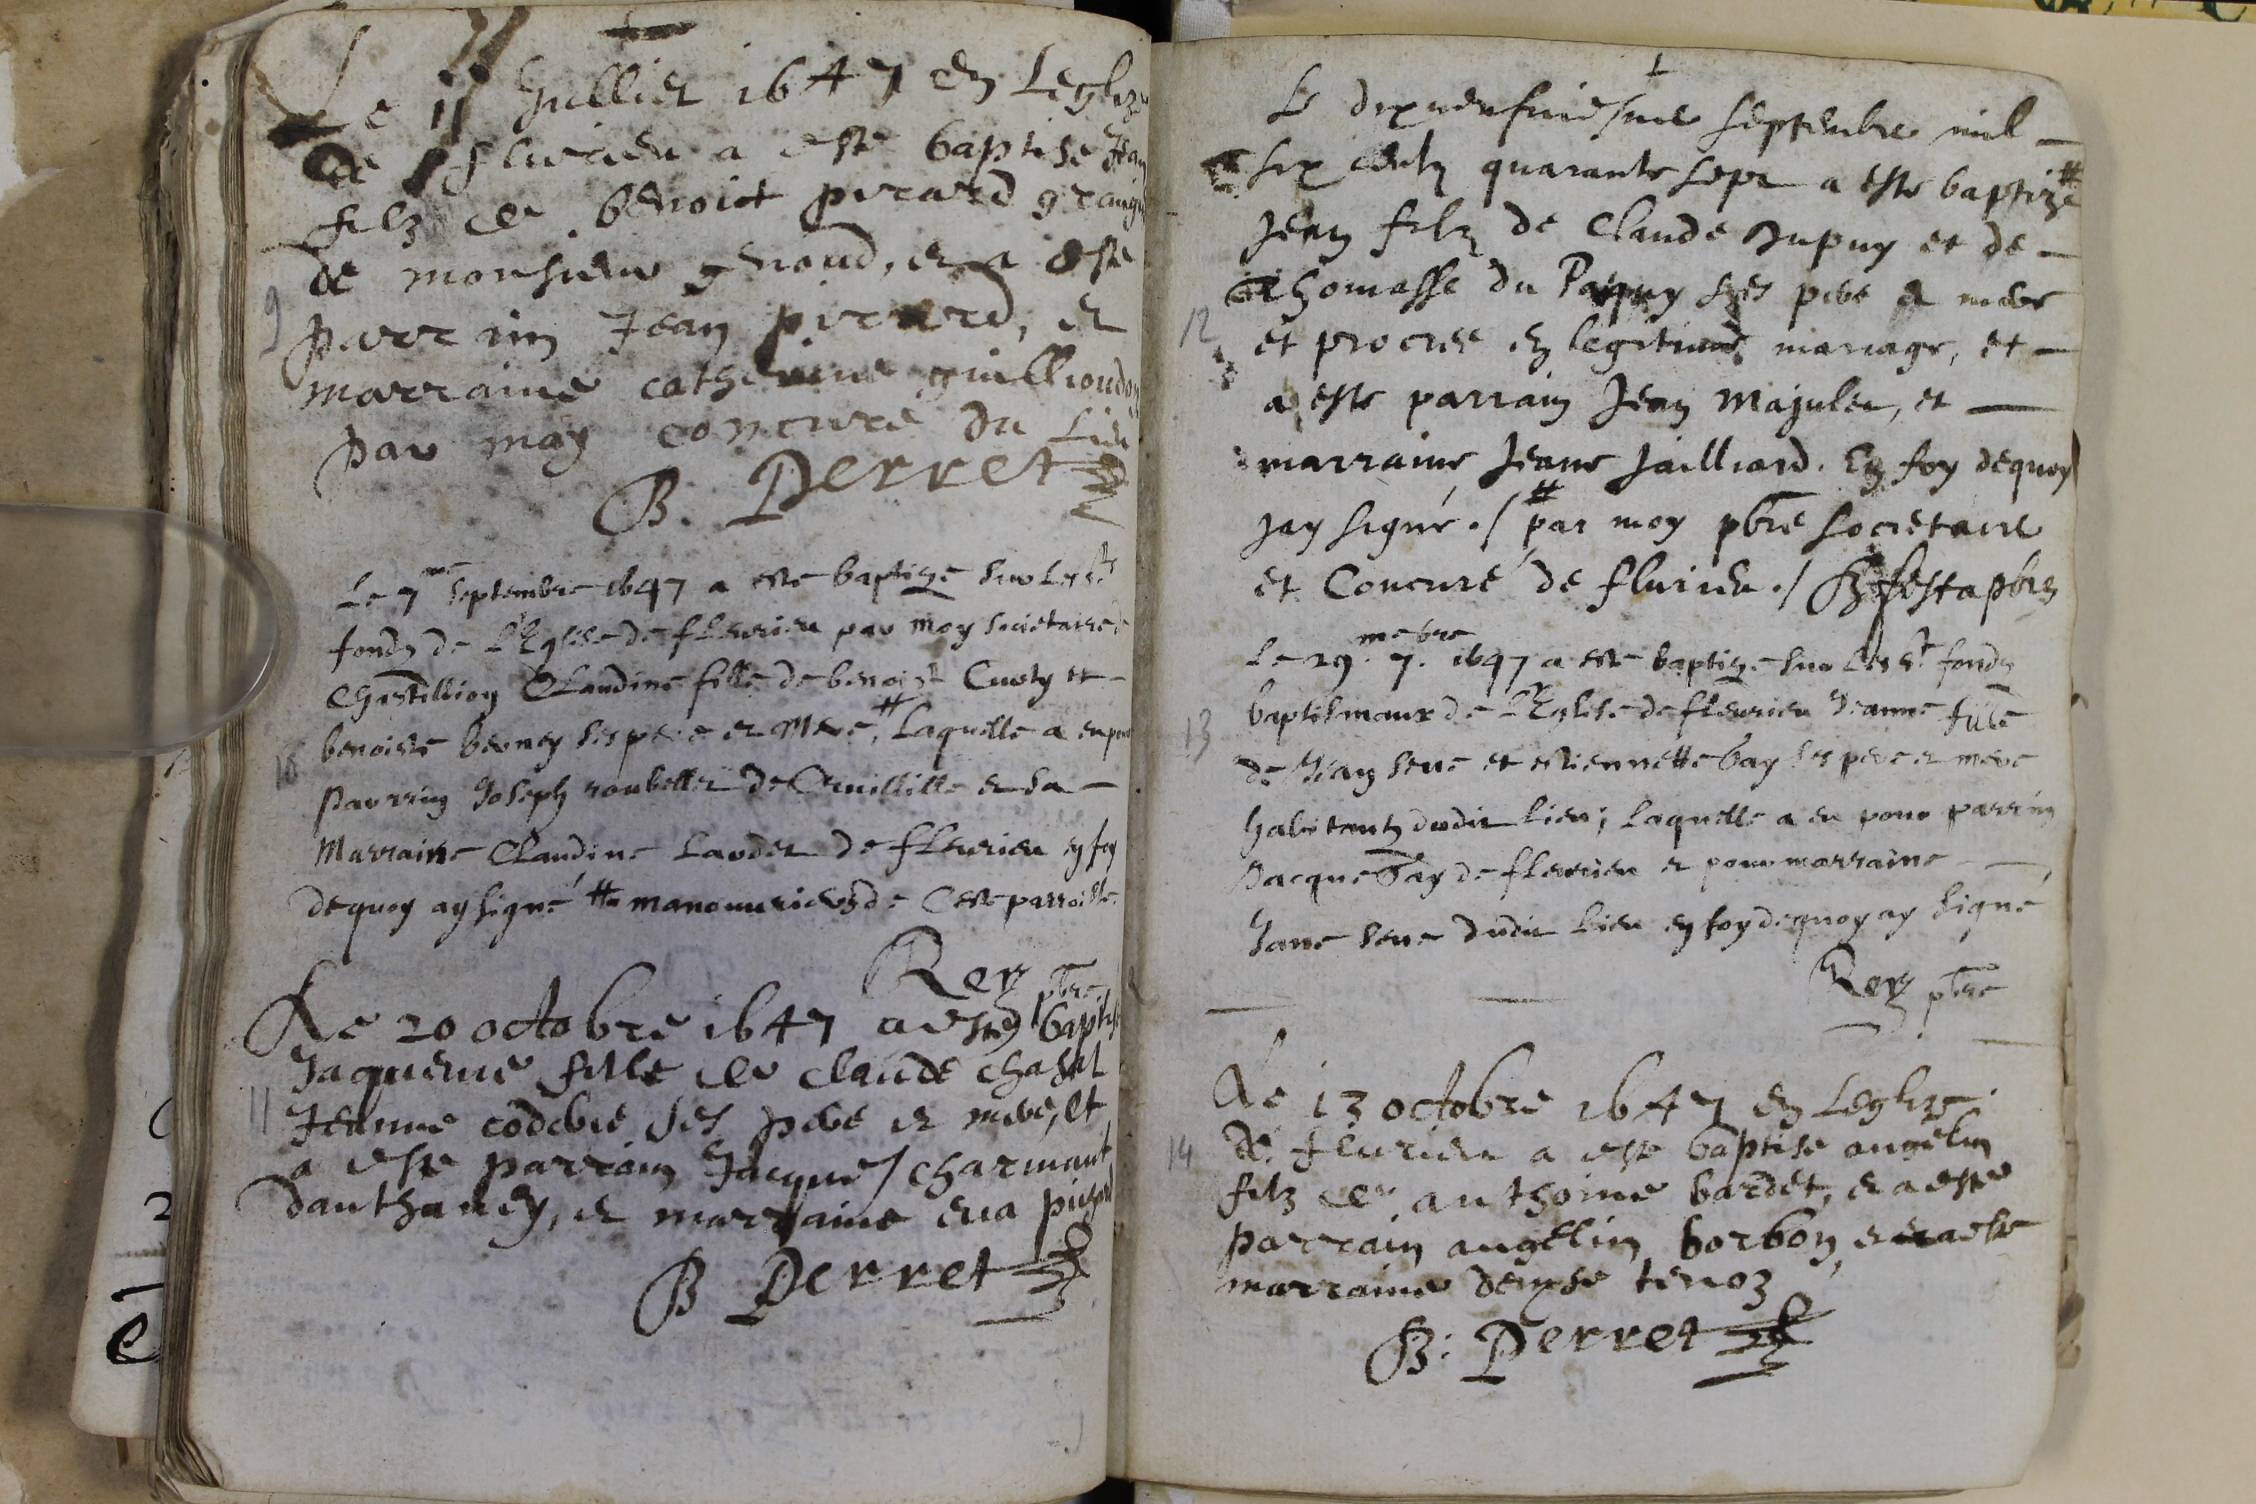 Le 11 Jullier 1647 en Leglize
de flurieu a este baptise Jean
filz de benoict pirard grangi
9
de monsieur genoud, et a este
parrain Jean pirard, et
marraine catherine guillioudon
par moy concuré du Lieu
B. Perret
Le 7me septembre 1647 a este baptizé sur les sts
fonds de l'Eglise de fleurieu par moy societaire de
Chastillion Claudine fille de benoist Curty et
benoiste berney ses pere et Mere, # Laquelle a eu pour
10
parrin Joseph roubellet de et sa
Marraine Claudine Lardet de fleurieu en foy
dequoy ay signé # manouvriers de Ceste parroisse
Rey pbre
Le 20 octobre 1647 a esté baptisé
Jaqueme fille de claude chasal
11
Jeanne ses pere et mere, et
a este parrain Jacque charmant
danthaney, et marraine eva
B Perret
Le dixneufviesme septembre mil
six centz quarante sept a este baptizé #
Jean filz de Claude Dupuy et de
Thomasse du Paquy ses pere et mere
12
et procree en legitime mariage, et
a este parrain Jean Majulen, et
marraine Jeane Jailliard. En foy dequoy
jay signé ./ # par moy pbre societaire
et Concuré de flurieu ./ festa pbre
Le 29me 7bre 1647 a este baptize sur les sts fonds
baptismaux de l'Eglise de fleurieu Jeanne fille
13
de Jean seue et estiennette bay ses pere et mere
habitantz dudit Lieu; Laquelle a eu pour parrin
Jacque bay de fleurieu et pour marraine
Jane seue dudit Lieu en foy dequoy ay signé
Rey pbre
Le 13 octobre 1647 en Leglize
14
de flurieu a este baptise angelin
filz de anthoine bardet, et a este
parrain angellin borbon et a este
marraine denyse tenoz
B: Perret